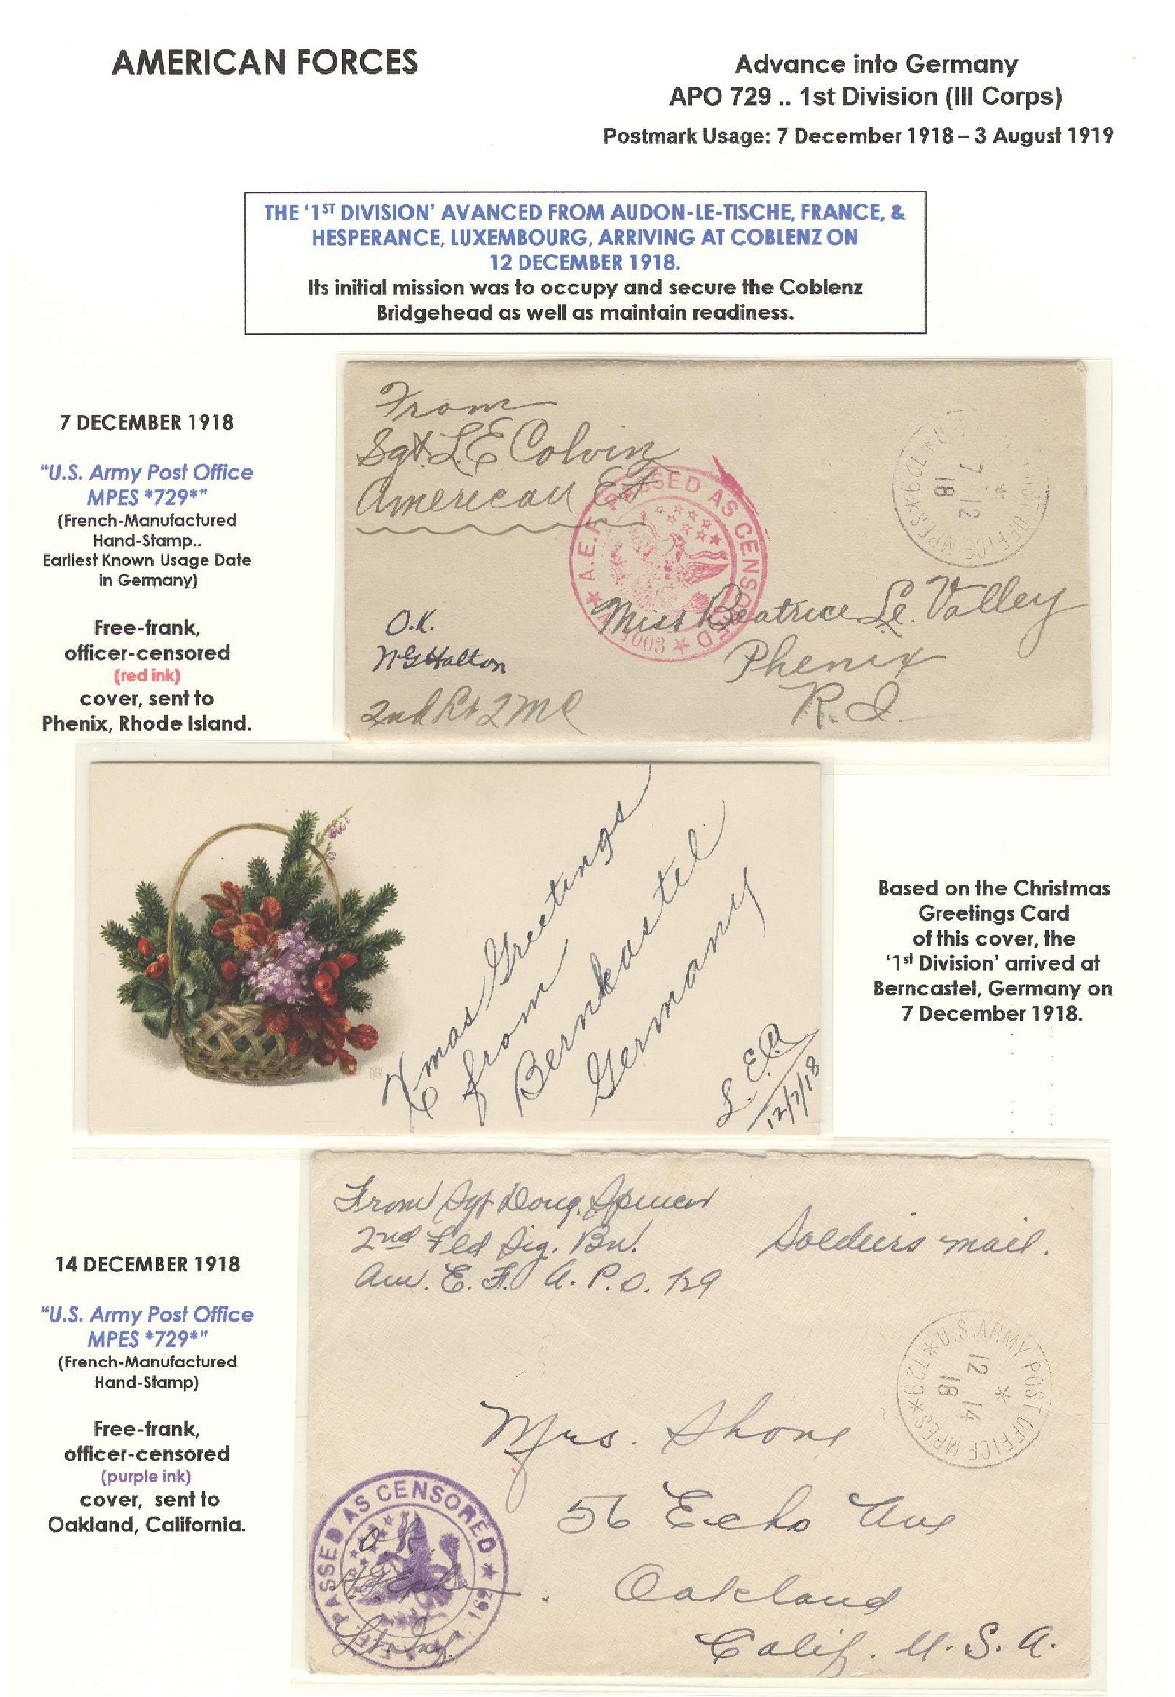 AMERICAN FORCES
Advance into Germany
APO 729 .. 1st Division (III Corps)
Postmark Usage: 7 December 1918 – 3 August 1919
THE ‘1ST DIVISION’ AVANCED FROM AUDON-LE-TISCHE, FRANCE, &
HESPERANCE, LUXEMBOURG, ARRIVING AT COBLENZ ON
12 DECEMBER 1918.
Its initial mission was to occupy and secure the Coblenz
Bridgehead as well as maintain readiness.
7 DECEMBER 1918
“U.S. Army Post Office
MPES *729*”
(French-Manufactured
Hand-Stamp..
Earliest Known Usage Date
in Germany)
Free-frank,
officer-censored
(red ink)
cover, sent to
Phenix, Rhode Island.
From
Sgt. L E Colvin
American E F
A.E.F. PASSED AS CENSORED
1003
OFFICE MPES *729* U.
7 12
18
O.K.
N G Halton
2nd Lt
Miss Beatrice Le Valley
Phenix
R. I.
Xmas Greetings
from
Bernkastel
Germany
L. E. C.
12/7/18
Based on the Christmas
Greetings Card
of this cover, the
‘1st Division’ arrived at
Berncastel, Germany on
7 December 1918.
14 DECEMBER 1918
“U.S. Army Post Office
MPES *729*”
(French-Manufactured
Hand-Stamp)
Free-frank,
officer-censored
(purple ink)
cover, sent to
Oakland, California.
From Sgt Doug. Spencer
2nd Fld Sig. Bn.
Am. E. F. A. P. O. 729
Soldiers mail.
U.S. ARMY POST OFFICE MPES *729*
12 14
18
Mrs. Shone
56 Echo Ave
Oakland
Calif. U. S. A.
PASSED AS CENSORED
O.K.